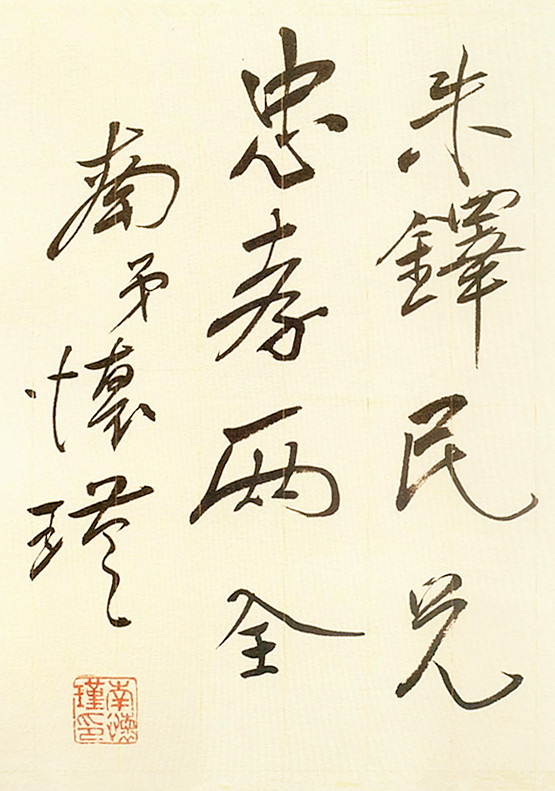 朱鐸民兄
忠孝兩全
南弟懷瑾
南懷瑾印